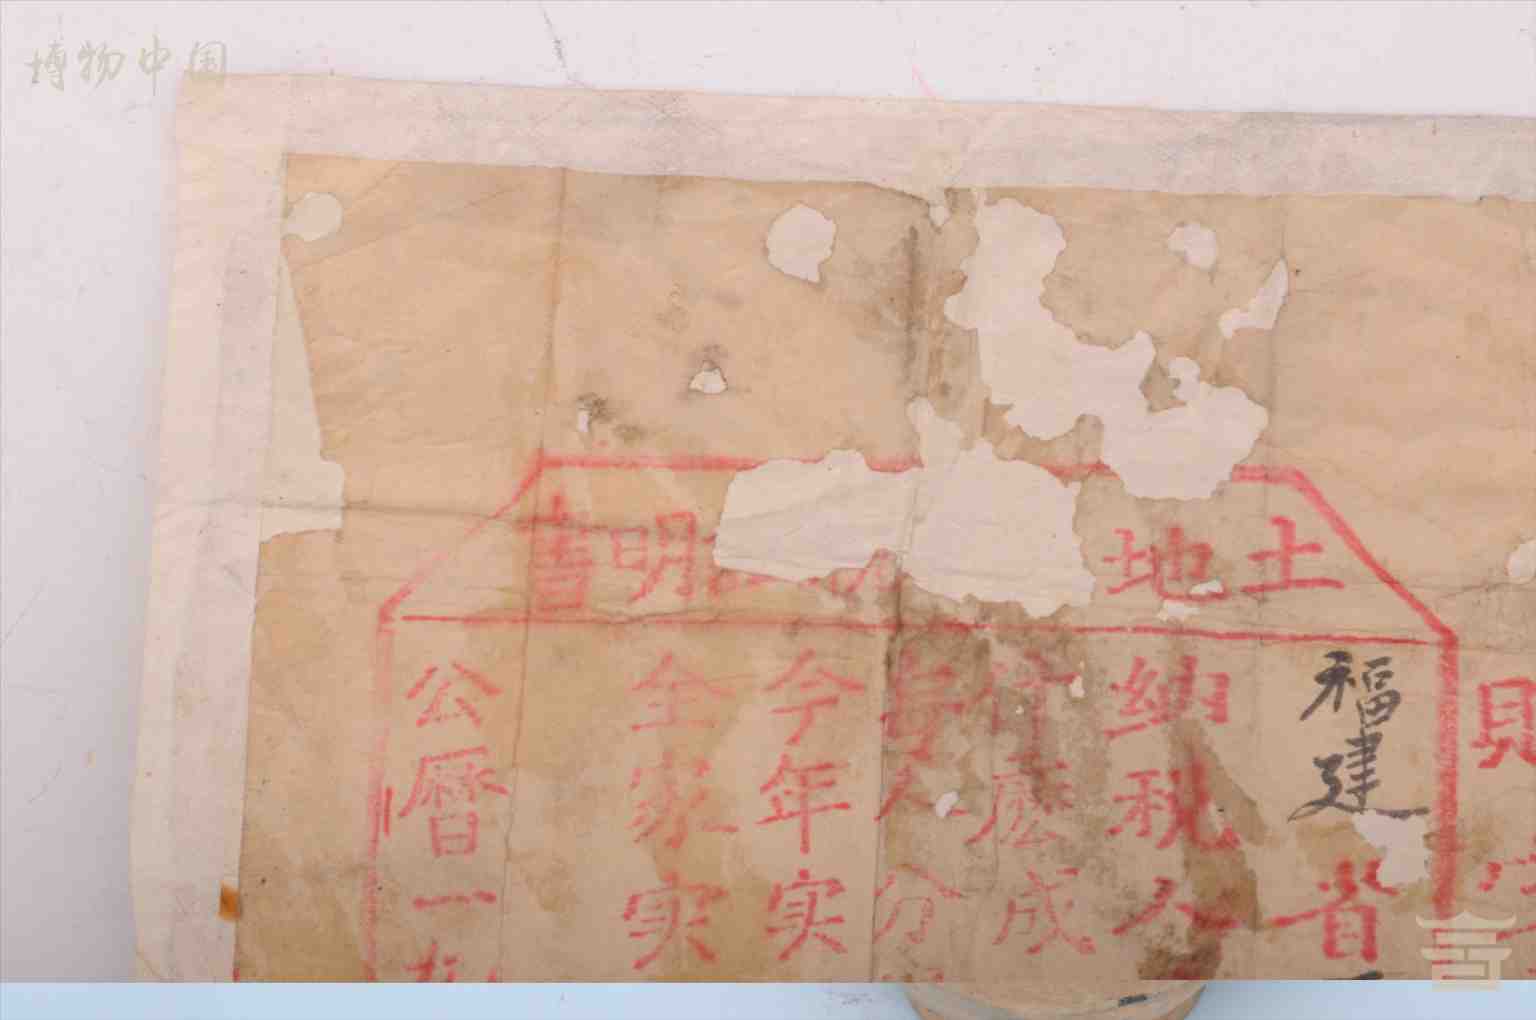 博物中国
土地
明書
福建省
納税人
什麽成
今年实
全家实
公曆一